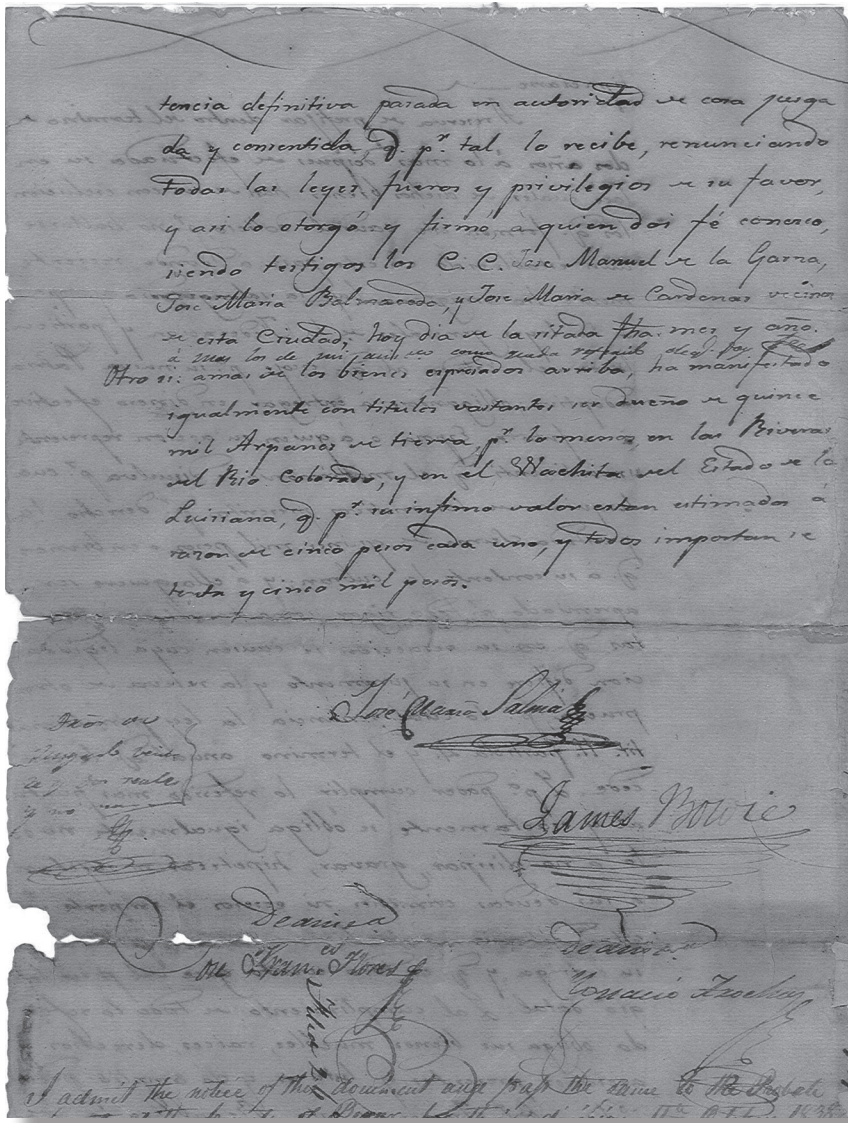 tencia definitiva pasada en autoridad de cosa jusga
da y consentida, q. pr. tal lo recibe, renunciando
todas las leyes fueros y privilegios de su favor,
y asi lo otorgó y firmó a quien doi fé conosco,
siendo testigos los C. C. Jose Manuel de la Garsa,
Jose Maria Balmaceda, y Jose Maria de Cardenas vecinos
de esta Ciudad, hoy dia de la sitada fha. mes y año.
Otro si: amas de los bienes espresados arriba, ha manifestado
igualmente con titulos vastantes ser dueño de quince
mil Arpanos de tierra, pr. lo menos, en las Riveras
del Rio Colorado, y en el Wachita del Estado de la
Luisiana, q. pr. su infimo valor estan estimados á
razon de cinco pesos cada uno, y todos importan se
tenta y cinco mil pesos.
José Maria Salinas
James Bowie
De asisa
De asisa
Franco Flores
Ygnacio
I admit the notice of this document and pass the same to the Probate